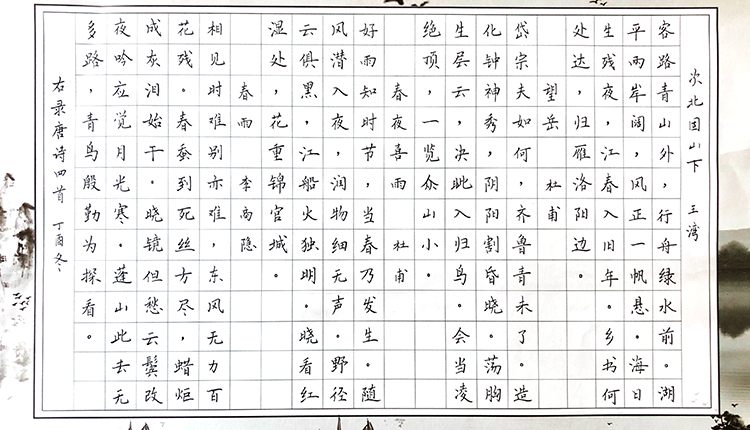 次北固山下 王湾
客路青山外，行舟绿水前。湖
平两岸阔，风正一帆悬。海日
生残夜，江春入旧年。乡书何
处达，归雁洛阳边。
望岳 杜甫
岱宗夫如何，齐鲁青未了。造
化钟神秀，阴阳割昏晓。荡胸
生层云，决眦入归鸟。会当凌
绝顶，一览众山小。
春夜喜雨 杜甫
好雨知时节，当春乃发生。随
风潜入夜，润物细无声。野径
云俱黑，江船火独明。晓看红
湿处，花重锦官城。
春雨 李商隐
相见时难别亦难，东风无力百
花残。春蚕到死丝方尽，蜡炬
成灰泪始干。晓镜但愁云鬓改
夜吟应觉月光寒。蓬山此去无
多路，青鸟殷勤为探看。
右录唐诗四首 丁酉冬